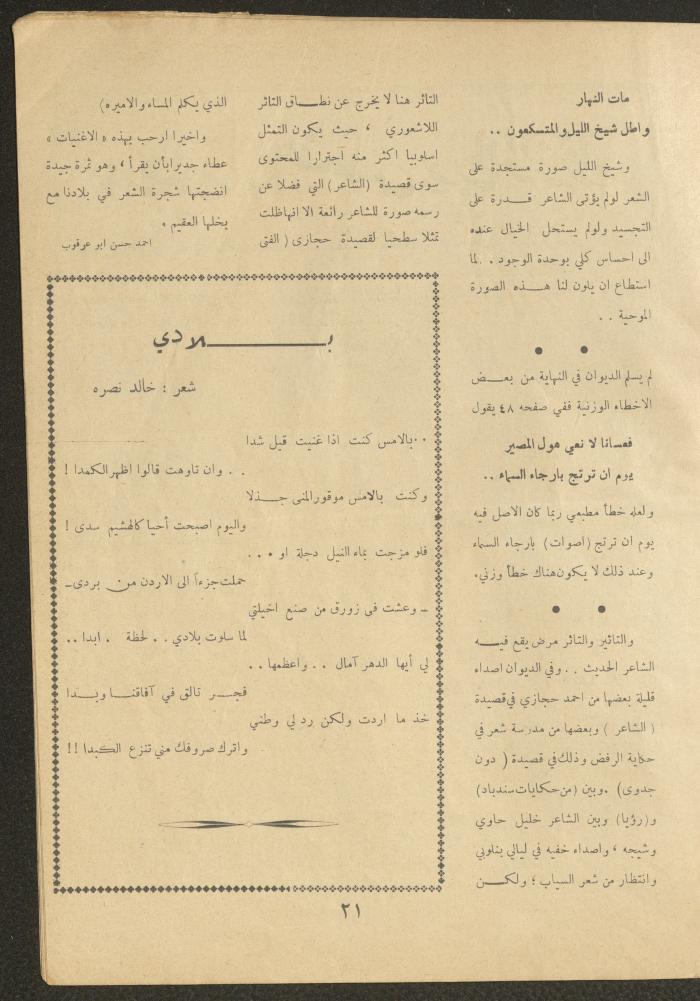 مات النهار
واطل شيخ الليل والمتسكعون ..
وشيخ الليل صورة مستجدة على
الشعر لولم يؤتى الشاعر قدرة على
التجسيد ولولم يستحل الخيال عنده
الى احساس كلي بوحدة الوجود . . لما
استطاع ان يلون لنا هذه الصورة
الموحية . .
لم يسلم الديوان في النهاية من بعض
الاخطاء الوزنية ففي صفحه ٤٨ يقول
فعسانا لا نعي هول المصير
يوم ان ترتج بارجاء السماء ..
ولعله خطأ مطبعي ربما كان الاصل فيه
يوم ان ترتج (اصوات) بارجاء السماء
وعند ذلك لا يكون هناك خطأ وزني.
والتاثير والتاثر مرض يقع فيه
الشاعر الحديث . . وفي الديوان اصداء
قليلة بعضها من احمد حجازي في قصيدة
( الشاعر ) وبعضها من مدرسة شعر في
حكاية الرفض وذلك في قصيدة ( دون
جدوى) . وبين (من حكايات سندباد)
و(رؤيا) وبين الشاعر خليل حاوي
وشيجه ، واصداء خفيه في ليالي بنلوبي
وانتظار من شعر السياب ؛ ولكن
التاثر هنا لا يخرج عن نطاق التاثر
اللاشعوري ، حيث يكون التمثل
اسلوبيا اكثر منه اجترارا للمحتوى
سوى قصيدة (الشاعر) التي فضلا عن
رسمه صورة للشاعر رائعة الا انها ظلت
تمثلا سطحيا لقصيدة حجازي ( الفتى
الذي يكلم المساء والاميره)
واخيرا ارحب بهذه « الاغنيات »
عطاء جديرا بأن يقرأ ، وهو ثمرة جيدة
انضجتها شجرة الشعر في بلادنا مع
بخلها العقيم .
احمد حسن ابو عرقوب
بلادي
شعر : خالد نصره
..بالامس كنت اذا غنيت قيل شدا
. . وان تاوهت قالوا اظهر الكمدا !
وكنت بالامس موقور المنى جذلا
واليوم اصبحت أحيا كالهشيم سدى !
فلو مزجت بماء النيل دجلة او . . .
حملت جزءاً الى الاردن من بردى ـ
ـ وعشت في زورق من صنع اخيلتي
لما سلوت بلادي . . لحظة . ابدا . .
لي أيها الدهر آمال . . واعظمها . .
فجر تالق في آفاقنا وبدا
خذ ما اردت ولكن رد لي وطني
واترك صروفك مني تنزع الكبدا !!
٢١